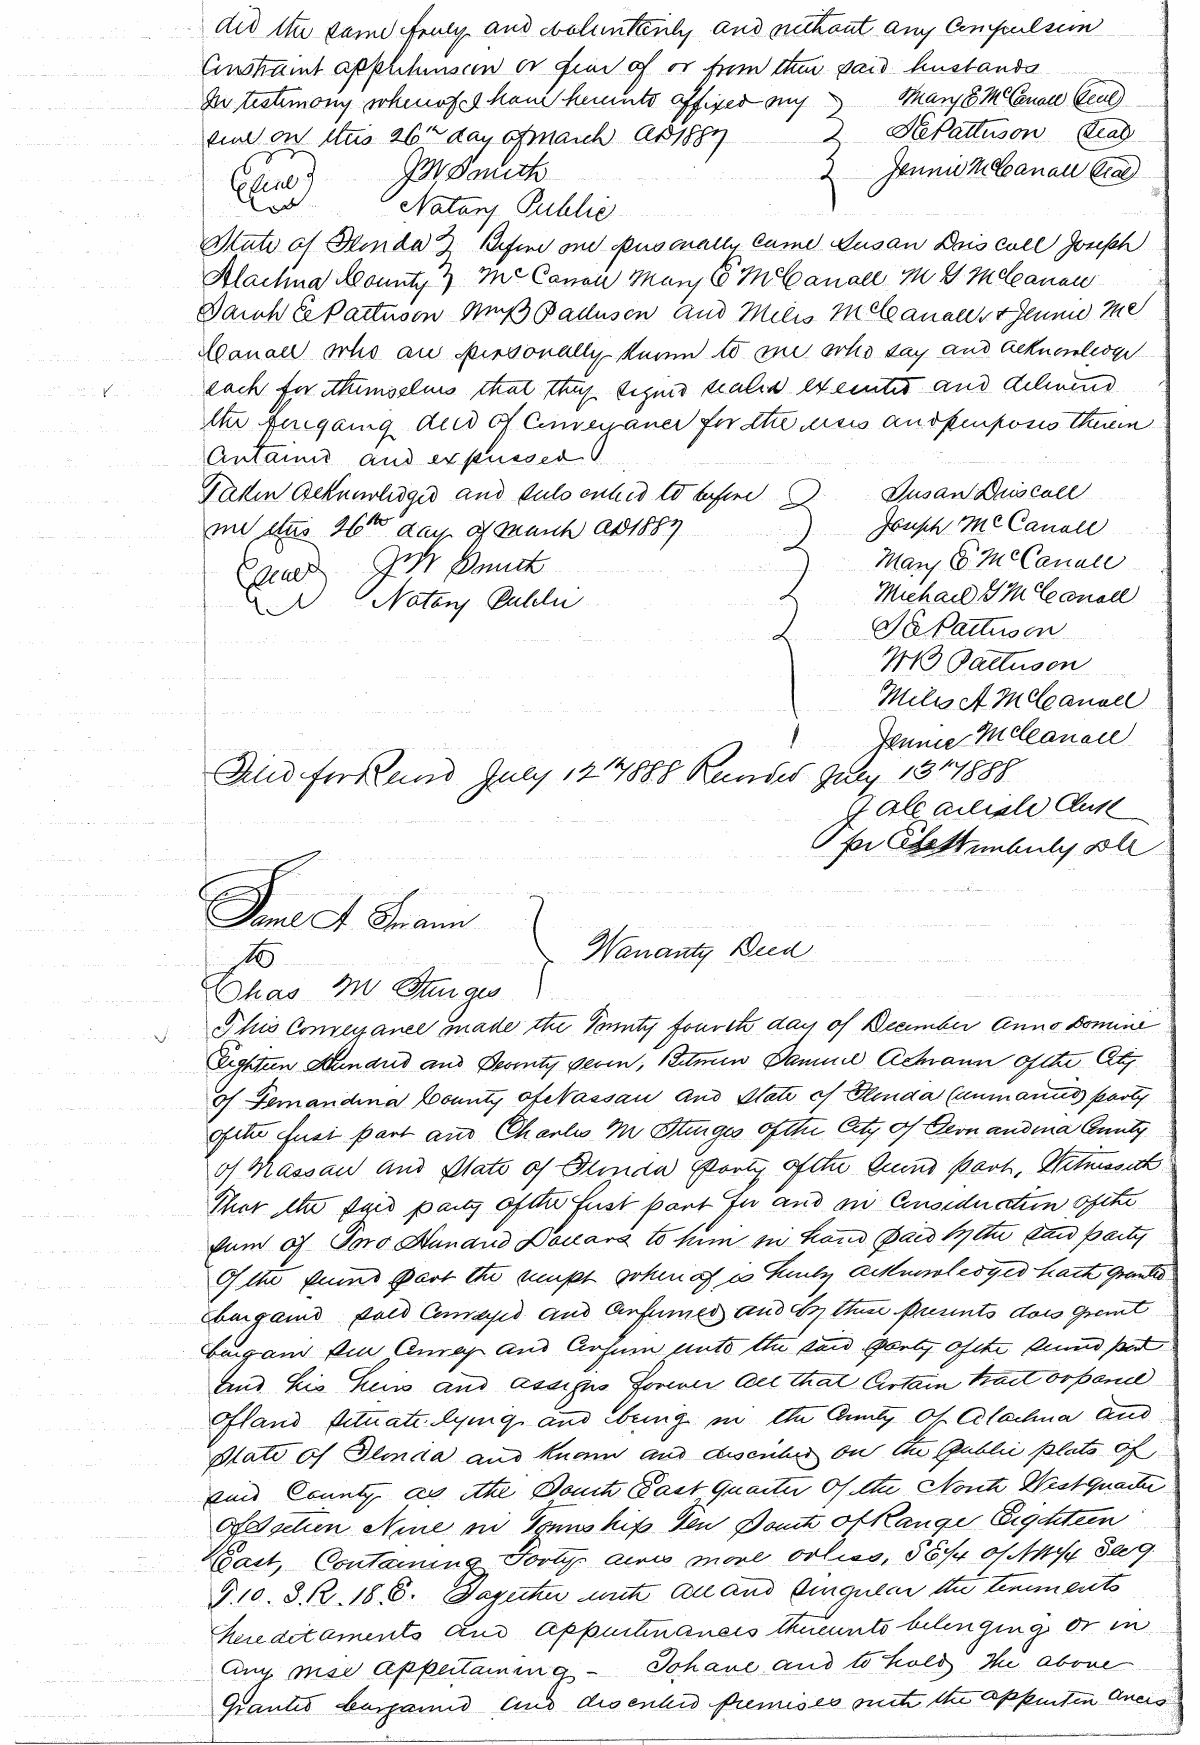 did the same freely and voluntarily and without any Compulsion
Constraint apprehension or fear of or from their said husbands
In testimony whereof I have hereunto affixed my } Mary E McCanall (Seal)
seal on this 26th day of March AD 1887 } S E Patterson (Seal)
(Seal) J W Smith } Jennie McCanall (Seal)
Notary Public
State of Florida } Before me personally came Susan Driscall Joseph
Alachua County } McCanall Mary E McCanall M G McCanall
Sarah E Patterson Wm B Patterson and Miles McCanall & Jennie Mc
Canall who are personally known to me who say and acknowledge
each for themselves that they signed sealed executed and delivered
the foregoing deed of Conveyance for the uses and purposes therein
Contained and expressed
Taken Acknowledged and subscribed to before } Susan Driscall
me this 26th day of March AD 1887 } Joseph McCanall
(Seal) J W Smith } Mary E McCanall
Notary Public } Michael G McCanall
S E Patterson
W B Patterson
Miles A McCanall
Jennie McCanall
Filed for Record July 12th 1888 Recorded July 13th 1888
J A Carlisle Clerk
per Wimberly DC
Saml A Swann
to } Warranty Deed
Chas M Sturges
This Conveyance made the Twenty fourth day of December Anno Domini
Eighteen Hundred and Seventy seven, Between Samuel A Swann of the City
of Fernandina County of Nassau and State of Florida (unmarried) party
of the first part and Charles M Sturges of the City of Fernandina County
of Nassau and State of Florida Party of the Second part, Witnesseth
That the said party of the first part for and in Consideration of the
sum of Two Hundred Dollars to him in hand paid by the said party
of the second part the receipt whereof is hereby acknowledged hath granted
bargained sold Conveyed and Confirmed and by these presents does grant
bargain sell Convey and Confirm unto the said party of the second part
and his heirs and assigns forever all that Certain tract or parcel
of land situate lying and being in the County of Alachua and
State of Florida and known and described on the public plats of
said County as the South East quarter of the North West quarter
of Section Nine in Township Ten South of Range Eighteen
East, Containing Forty acres more or less, SE1/4 of NW1/4 Sec 9
T.10. S.R. 18.E. Together with all and singular the tenements
hereditaments and appurtenances thereunto belonging or in
any wise appertaining - To have and to hold the above
Granted bargained and described premises with the appurtenances